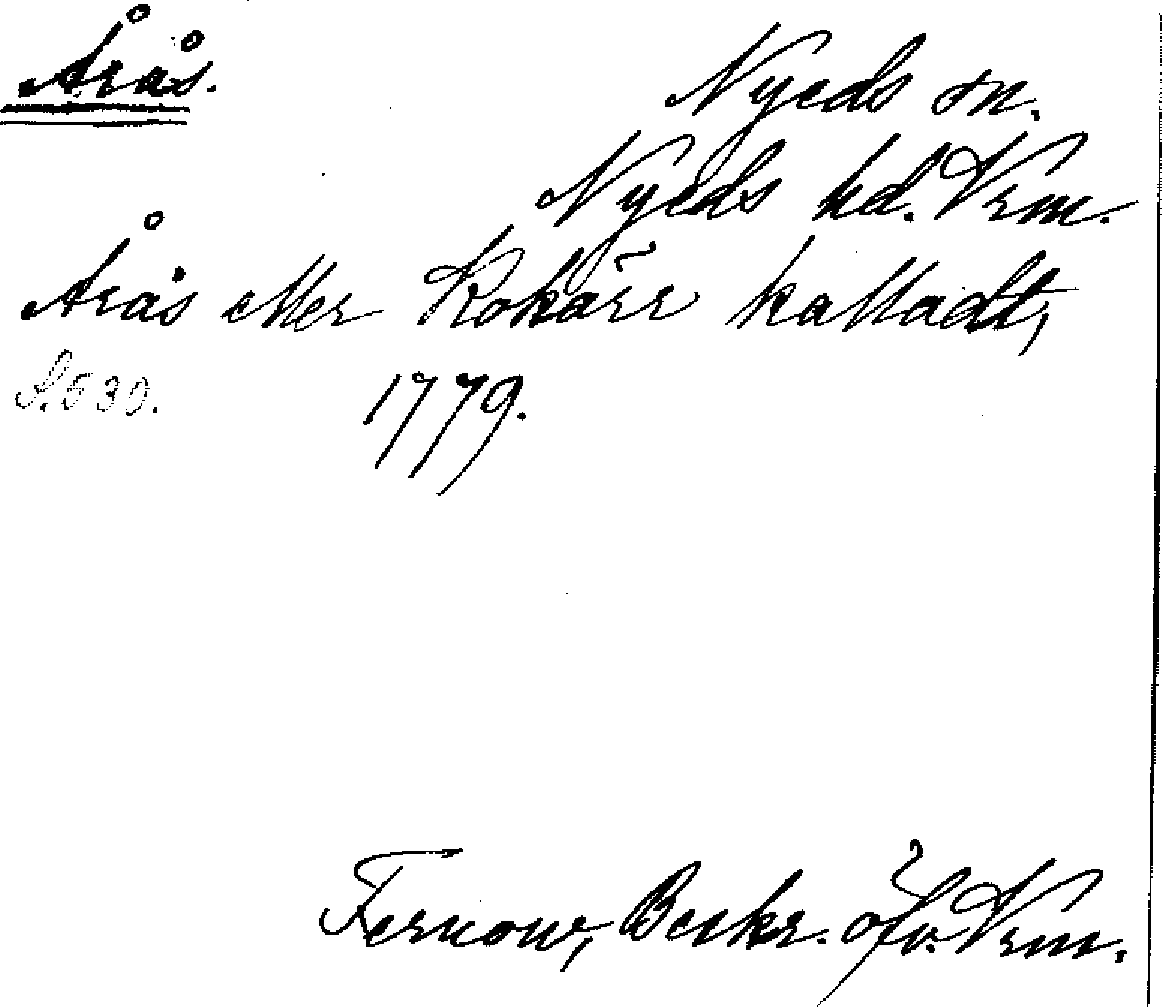 Årås.
Nyeds sn.
Nyeds hd. Vrm.
Årås eller Kokärr kalladt,
S. 530. 1779.
Fernow, Beskr. öfv. Vrm.